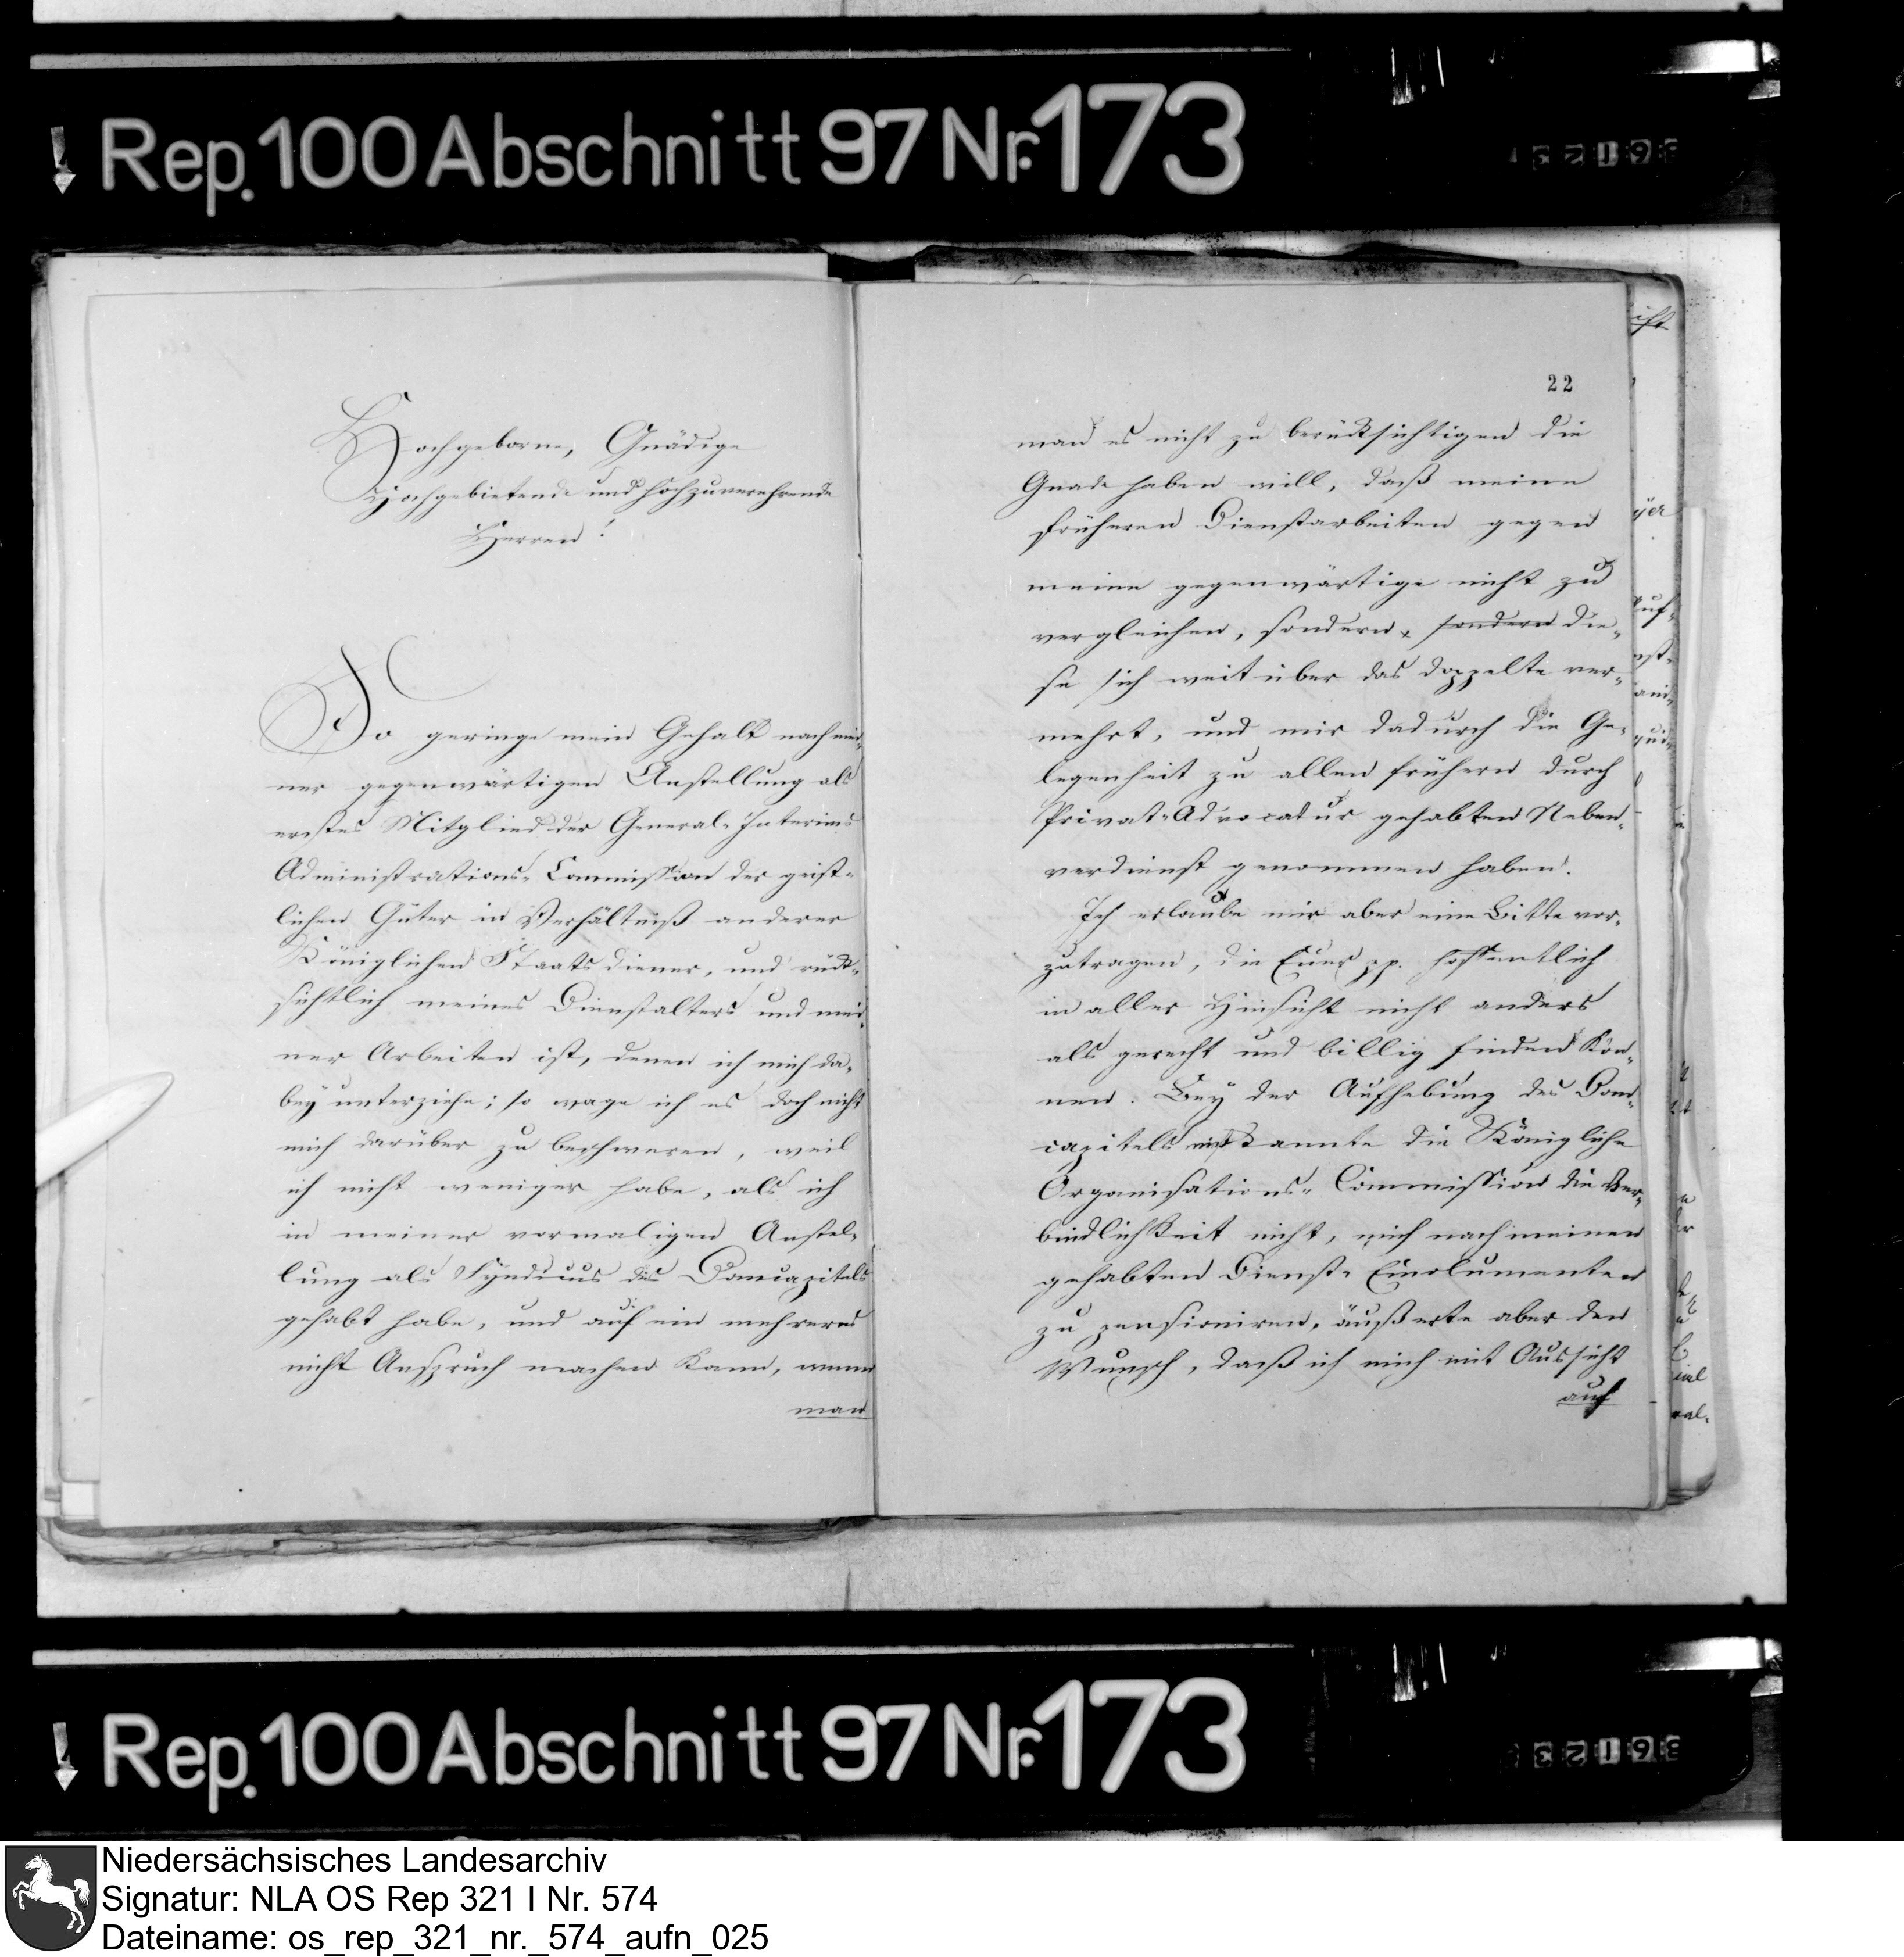 Rep. 100 Abschnitt 97 Nr. 173
Hochgeborne, Gnädige
Hochgebietende und hochzuverehrende
Herren!
So geringe mein Gehalt nach mei-
ner gegenwärtigen Anstellung als
erstes Mitglied der General-Interims
Administrations-Commission der geist-
lichen Güter in Verhältniß anderer
Königlichen Staatsdiener, und rück-
sichtlich meines Dienstalters und mei-
ner Arbeiten ist, denen ich mich da-
bey unterziehe; so wage ich es doch nicht
mich darüber zu beschweren, weil
ich nicht weniger habe, als ich
in meiner vormaligen Anstel-
lung als Syndicus des Domcapitels
gehabt habe, und auf ein mehreres
nicht Anspruch machen kann, wenn
man
22
man es nicht zu berücksichtigen die
Gnade haben will, daß meine
früheren Dienstarbeiten gegen
meine gegenwärtige nicht zu
vergleichen, sondern, sondern die-
se sich weit über das doppelte ver-
mehrt, und mir dadurch die Ge-
legenheit zu allen frühern durch
Privat-Advocatur gehabten Neben-
verdienst genommen haben.
Ich erlaube mir aber eine Bitte vor-
zutragen, die Euer pp. hoffentlich
in aller Hinsicht nicht anders
als gerecht und billig finden kön-
nen. Bey der Aufhebung des Dom-
capitels die Königliche
Organisations-Commission die Ver-
bindlichkeit nicht, mich nach meinen
gehabten Dienst-Emolumenten
zu pensioniren, äußerte aber den
Wunsch, daß ich mich mit Aussicht
auf
Rep. 100 Abschnitt 97 Nr. 173
Niedersächsisches Landesarchiv
Signatur: NLA OS Rep 321 I Nr. 574
Dateiname: os_rep_321_nr._574_aufn_025